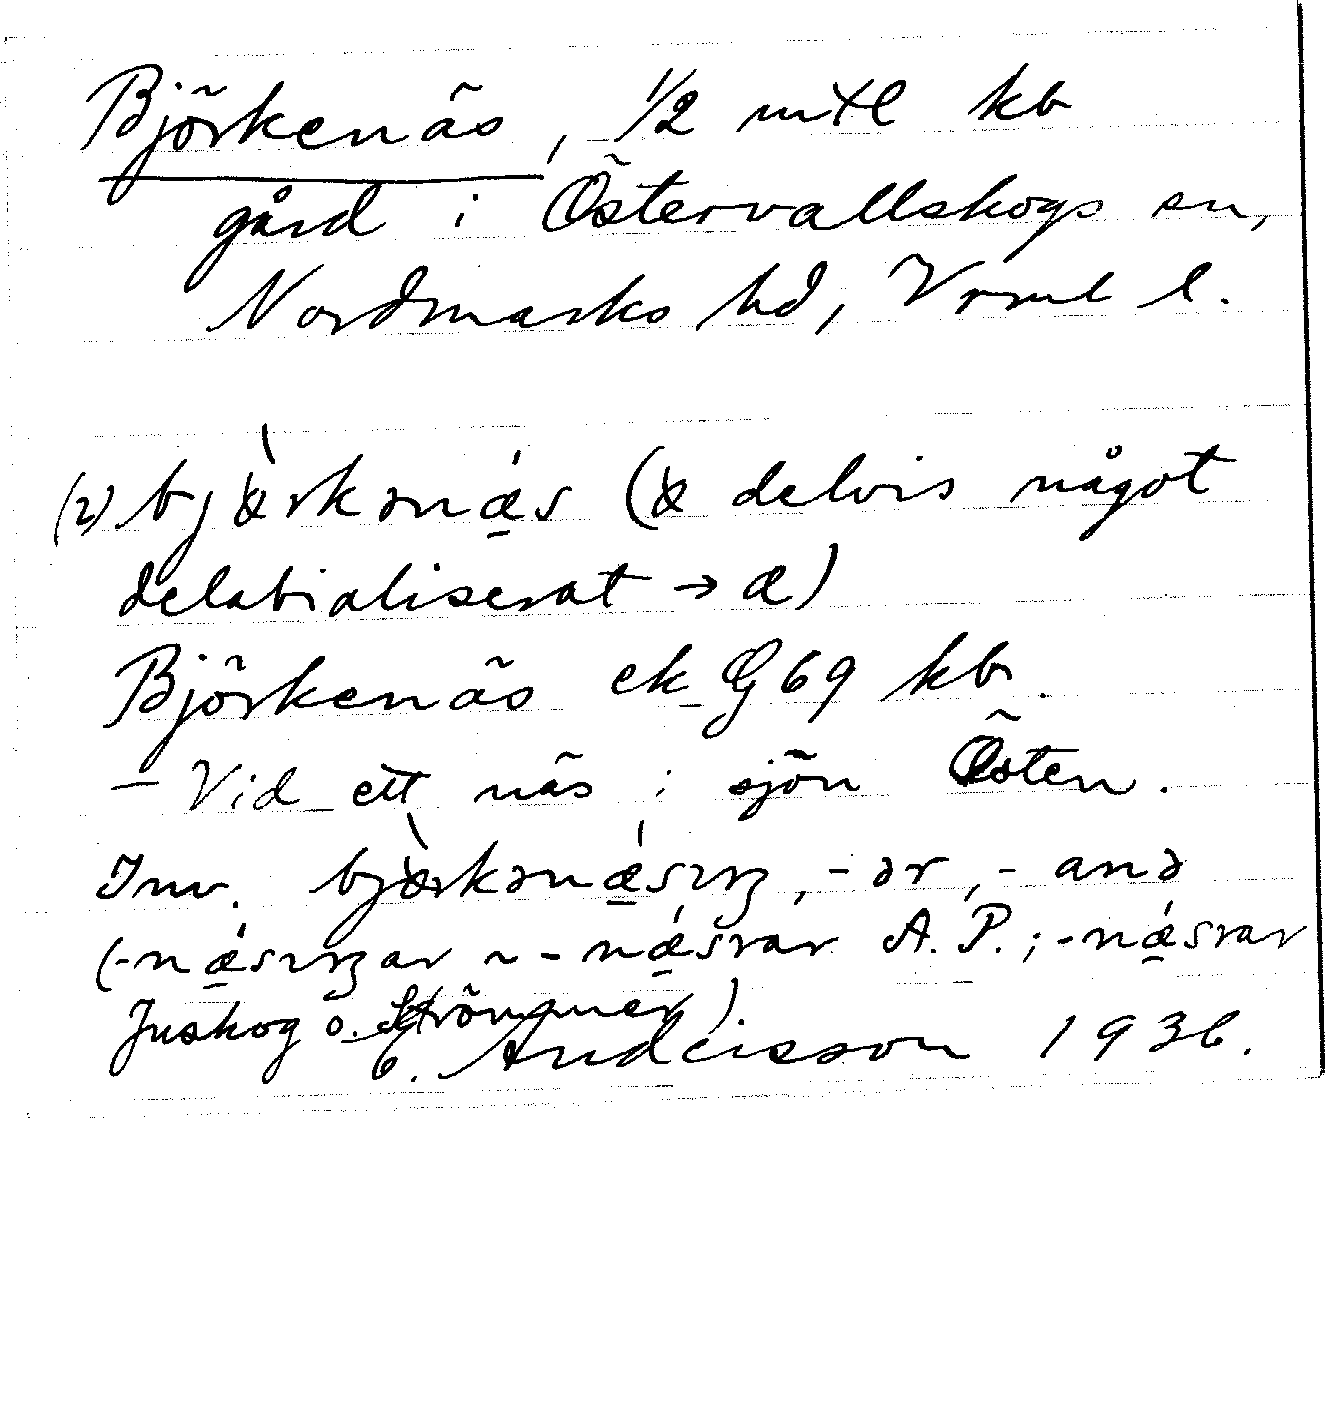 Björkenäs, 1/2 mtl kb
gård i Östervallskogs sn,
Nordmarks hd, Vrml l.
(2) bjærkənǽ̱s (æ delvis något
delabialiserat → æ)
Björkenäs ek G69 kb.
– Vid ett näs i sjön Östen.
Inv. bjærkənǽ̱sıŋ, -ər, -anə
(-nǽ̱sıŋar ~ -nǽ̱srar A.P.; -nǽ̱srar
Juskog o. Strömmer).
C. Andersson 1936.